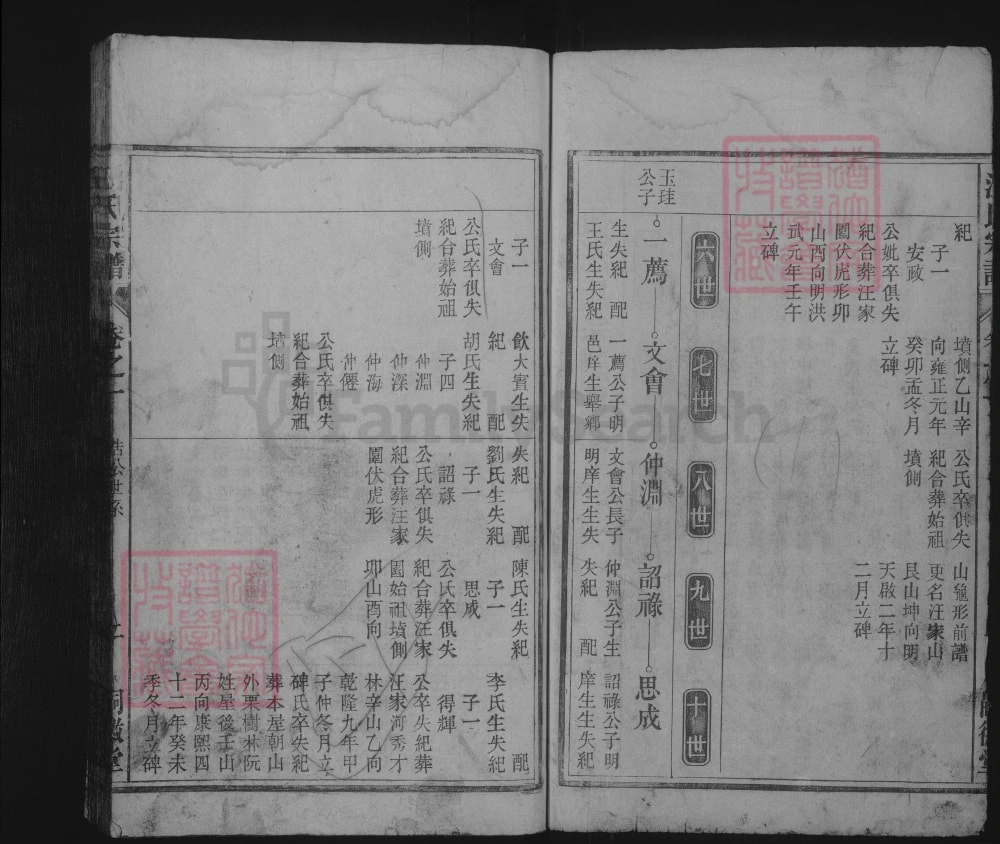 紀
子一
安政
公妣卒俱失
紀合葬汪家
園伏虎形卯
山酉向明洪
武元年壬午
立碑
墳側乙山辛
向雍正元年
癸卯孟冬月
立碑
公氏卒俱失
紀合葬始祖
墳側
山籠形前譜
更名汪家山
艮山坤向明
天啟二年十
二月立碑
六世
七世
八世
九世
十世
玉珪
公子
一薦
文會
仲淵
詔祿
思成
生失紀 配
王氏生失紀
一薦公子明
邑庠生舉鄉
文會公長子
明庠生生失
仲淵公子生
失紀 配
詔祿公子明
庠生生失紀
子一
文會
公氏卒俱失
紀合葬始祖
墳側
飲大賓生失
紀 配
胡氏生失紀
子四
仲淵
仲深
仲海
仲儒
公氏卒俱失
紀合葬始祖
墳側
失紀 配
劉氏生失紀
子一
詔祿
公氏卒俱失
紀合葬汪家
園伏虎形
陳氏生失紀
子一
思成
公氏卒俱失
紀合葬汪家
園始祖墳側
卯山酉向
配
李氏生失紀
子一
得輝
公卒失紀葬
汪家河秀才
林辛山乙向
乾隆九年甲
子仲冬月立
碑氏卒失紀
葬本屋朝山
外栗樹林阮
姓屋後壬山
丙向康熙四
十二年癸未
季冬月立碑
氏宗譜
卷之一